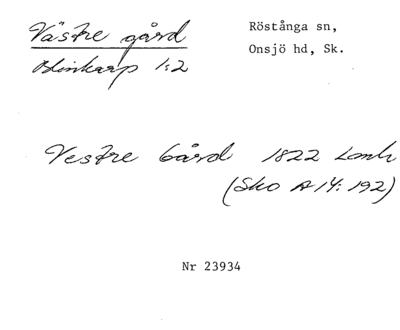 Västre gård
Röstånga sn,
Onsjö hd, Sk.
Blinkarp 1:2
Vestre Gård 1822 Lmh
(Sko A 14: 192)
Nr 23934